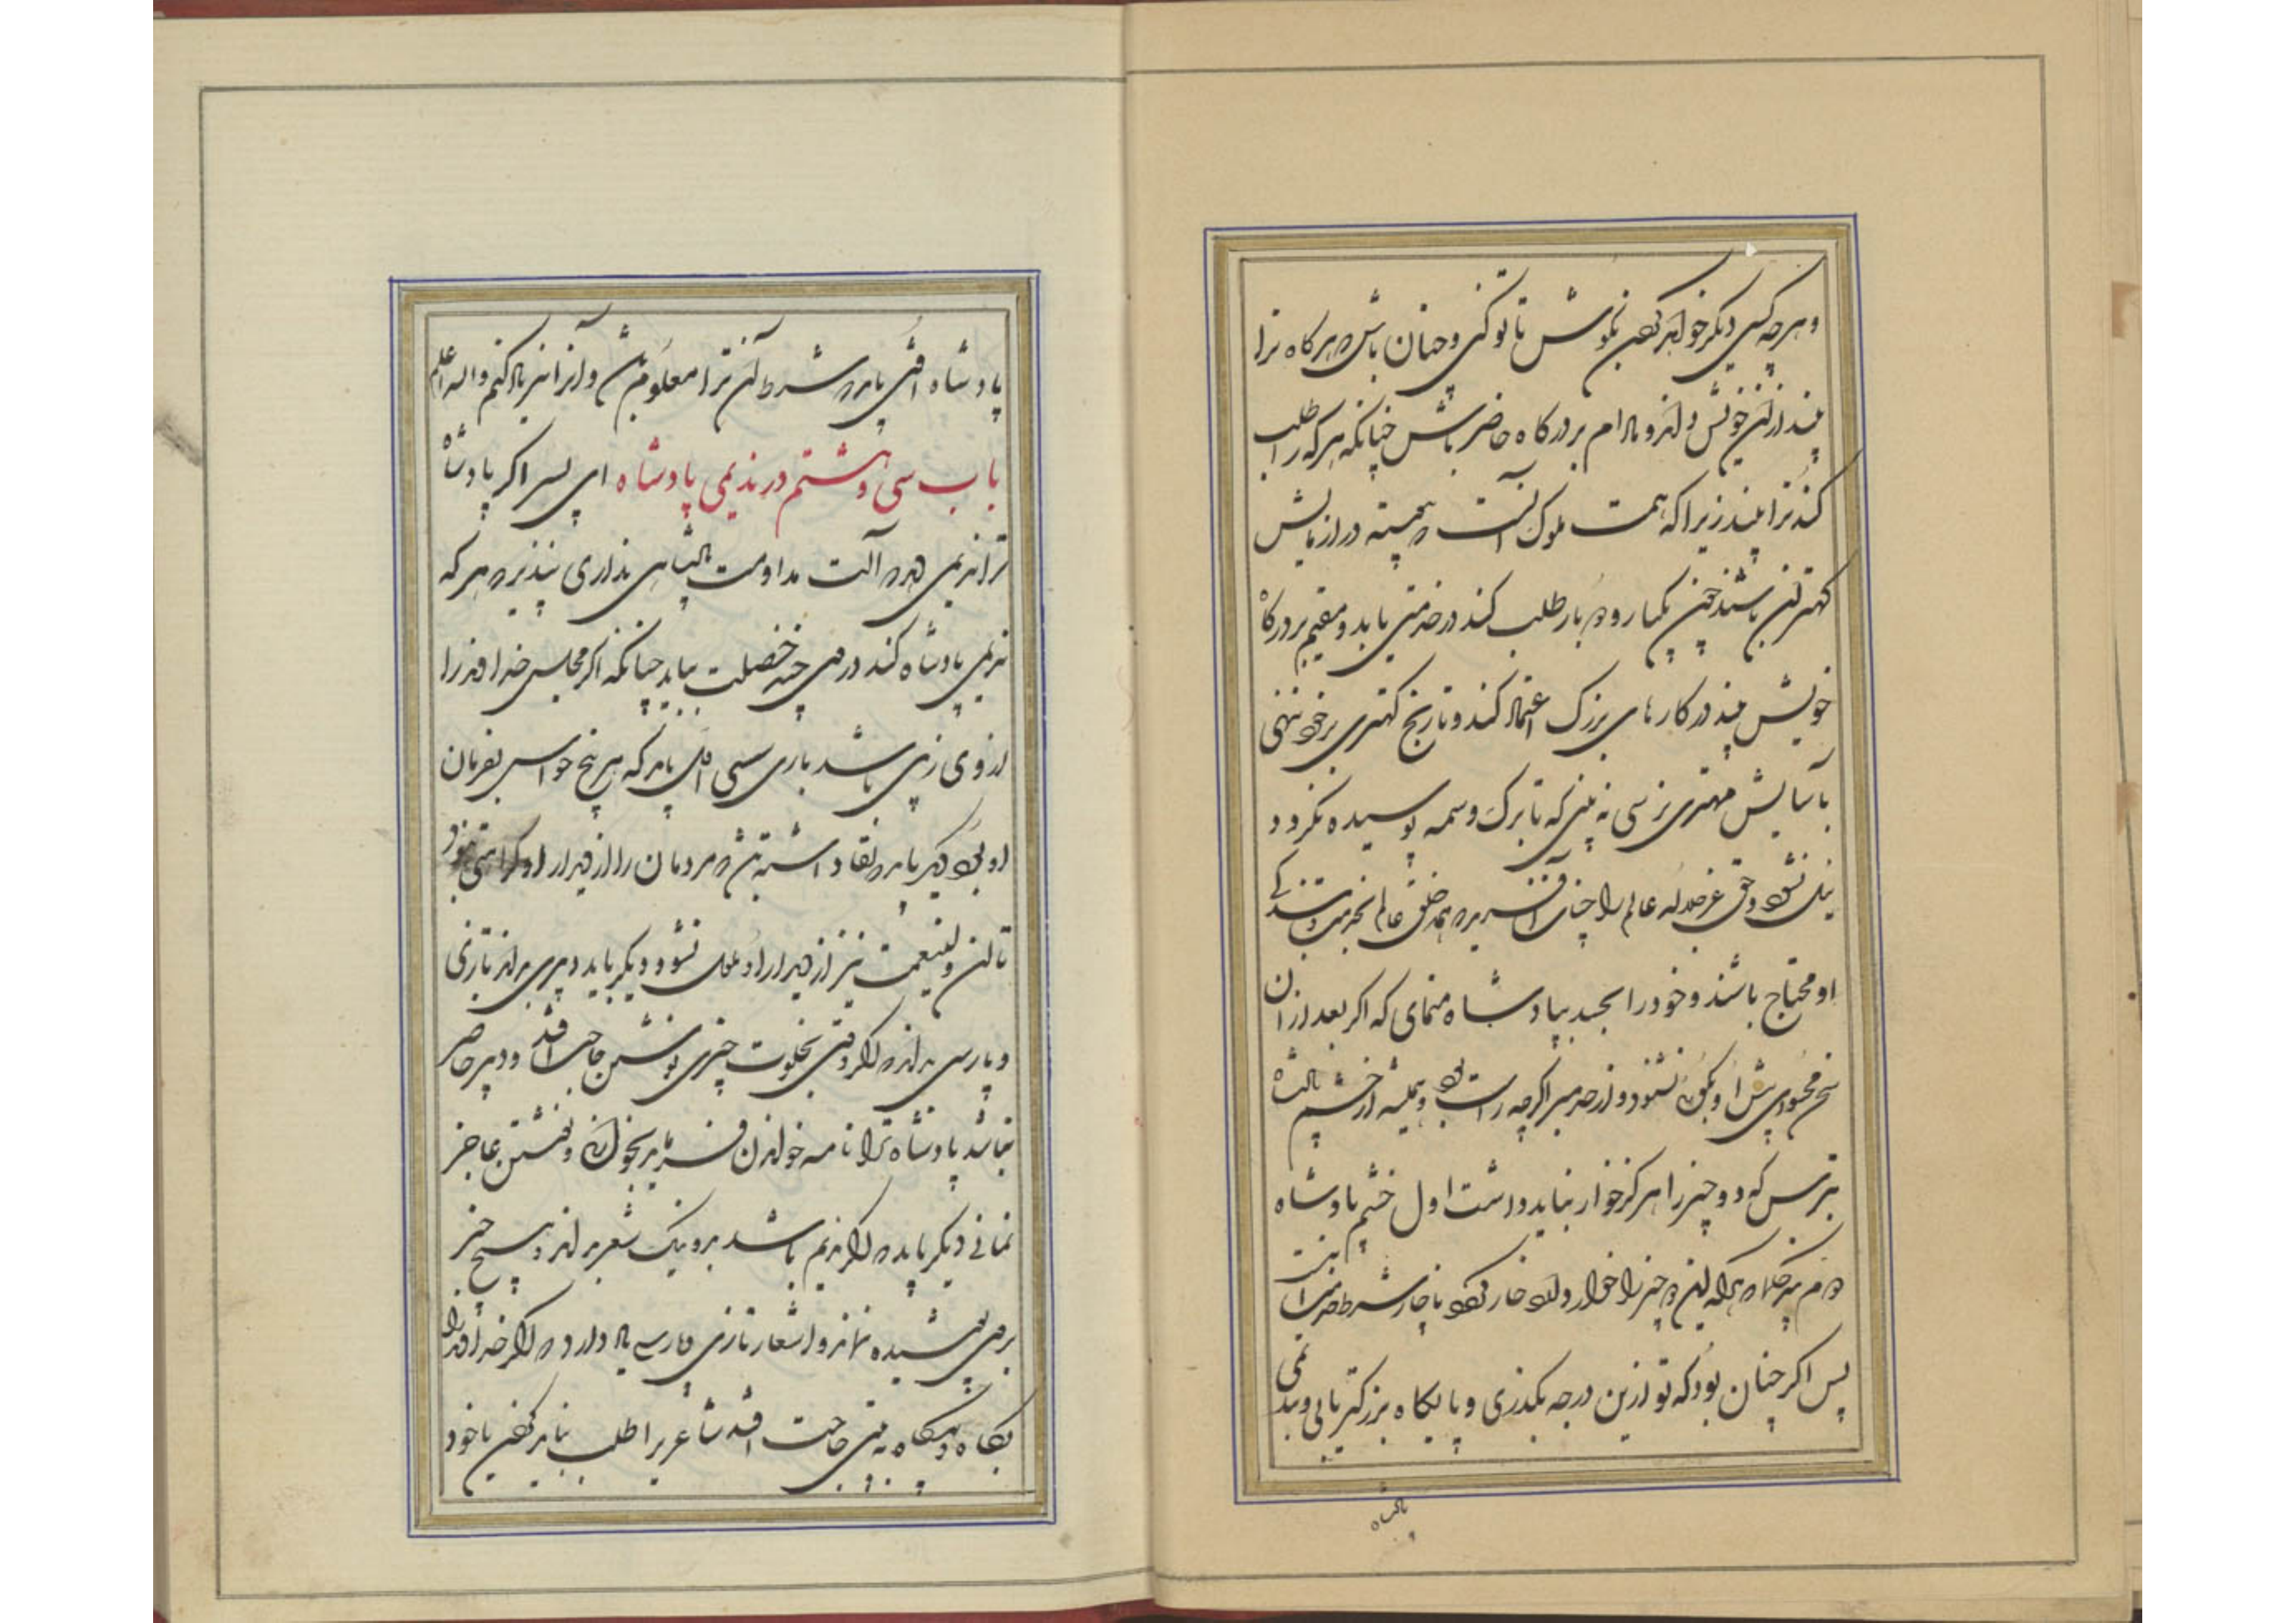 و هرچه کسی دیگر خواهد کردن بکوش تا تو کنی و چنان باش که هرگاه ترا
بیند در آن خویش بیند و مادام بر درگاه حاضر باش چنانکه هر که را طلب
کند ترا بیند زیرا که همت ملوک آنست که همیشه در آزمایش
کهتران باشند چون یکبار و ده بار طلب کند در خدمتی یابد و مقیم بر درگاه
خویش بیند در کارهای بزرگ اعتماد کند و تا رنج کهتری بر خود ننهی
بآسایش مهتری نرسی نه بینی که تا برک وسمه پوسیده نگردد
نیل نشود و حق عالم را چنان آفرید که همه خلق عالم
او محتاج باشند و خود را بحسد بپادشاه منمای که اگر بعد از آن
سخن محسودی پیش او بگوئی نشنود و از حسد اگرچه راست بود و همیشه از خشم پادشاه
بترس که دو چیز را هرگز خوار نباید داشت اول خشم پادشاه
دوم پند حکما که هر که این دو چیز را خوار دارد خوار شود
پس اگر چنان بود که تو ازین درجه بگذری و پایگاه بزرگتر یابی و بندیمی
پادشاه
پادشاه افتی باید که شرط آن ترا معلوم باشد و آنرا نیز یاد کنم والله اعلم
باب سی و هشتم در ندیمی پادشاه ای پسر اگر پادشاه
ترا ندیمی دهد که آلت مداومت پادشاهی نداری نپذیر که هر که
ندیمی پادشاه کند در وی چند خصلت بباید چنانکه اگر مجلس خداوند را
از وی زینی باشد باری شینی اول باید که هر پنج حواس بفرمان
او بود دیگر باید که لقا داشته باشد که مردمان را از دیدار او کراهتی نبود
تا آن ولینعمت نیز از دیدار او ملول نشود و دیگر باید دبیری بداند تازی
و پارسی بداند که اگر وقتی بخلوت چیزی نوشتن حاجت افتد و دبیر حاضر
نباشد پادشاه ترا نامه خواندن فرماید بخواندن و نوشتن عاجز
نمانی دیگر باید که اگر ندیم باشد بد و نیک شعر بداند و هیچ چیز
بر وی پوشیده نماند و اشعار تازی و پارسی یاد دارد که اگر خداوند را
بگاه و بیگاه به بیتی حاجت افتد شاعر را طلب نباید کردن یا خود